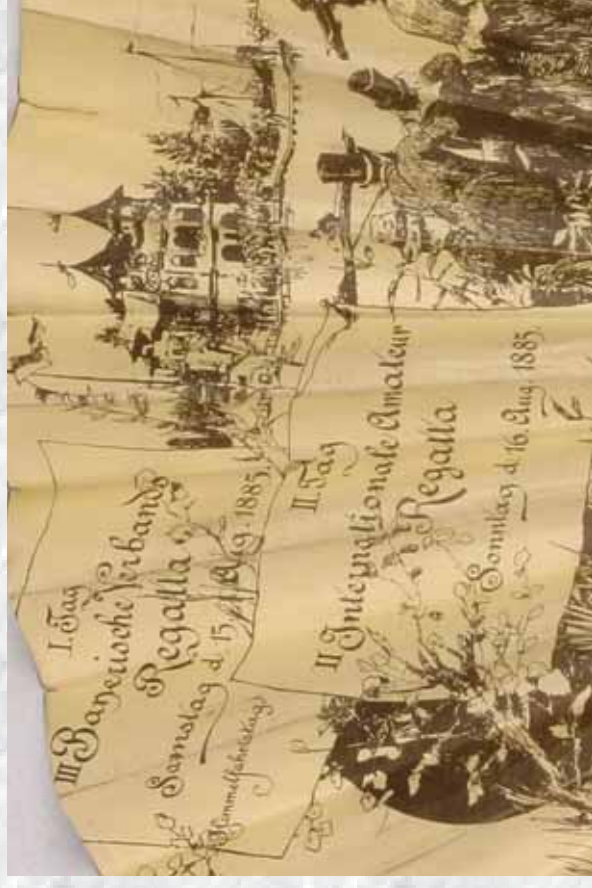 I. Tag
III Bayerische Verbands
Regatta
Samstag d. 15. Aug. 1885.
(Himmelfahrtstag)
II. Tag
II Internationale Amateur
Regatta
Sonntag d. 16. Aug. 1885.